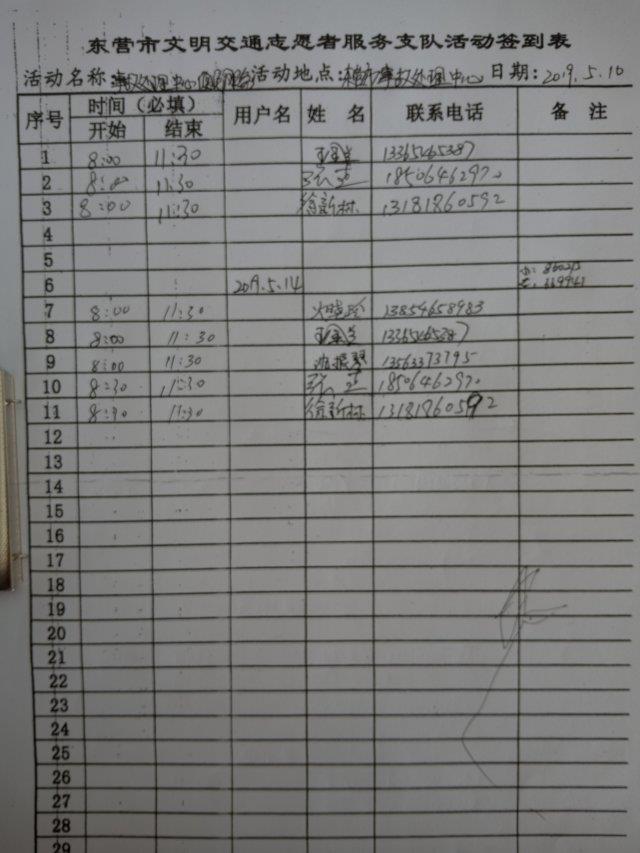 东营市文明交通志愿者服务支队活动签到表
活动名称: 活动地点: 事故处理中心 日期: 2019.5.10
序号 时间（必填） 用户名 姓 名 联系电话 备 注
开始 结束
1 8:00 11:30
2 8:00 11:30 18506462970
3 8:00 11:30 徐新林 13181860592
4
5
6 2019.5.14
7 8:00 11:30 13854658983
8 8:00 11:30
9 8:00 11:30 13563373795
10 8:30 11:30 18506462970
11 8:30 11:30 徐新林 13181860592
12
13
14
15
16
17
18
19
20
21
22
23
24
25
26
27
28
29